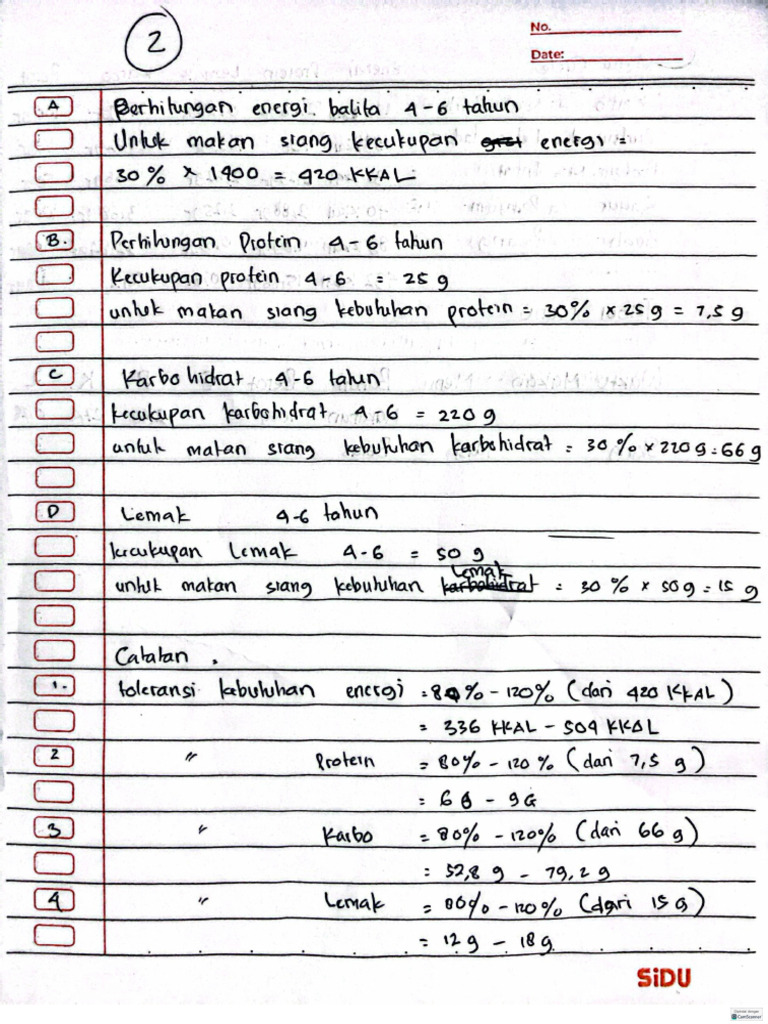 2
No.
Date:
A Perhitungan energi balita 4-6 tahun
Untuk makan siang kecukupan energi =
30% × 1400 = 420 KKAL
B. Perhitungan Protein 4-6 tahun
Kecukupan protein 4-6 = 25 g
untuk makan siang kebutuhan protein = 30% × 25 g = 7,5 g
C Karbohidrat 4-6 tahun
kecukupan karbohidrat 4-6 = 220 g
untuk makan siang kebutuhan karbohidrat = 30% × 220 g = 66 g
D Lemak 4-6 tahun
kecukupan Lemak 4-6 = 50 g
untuk makan siang kebutuhan karbohidrat Lemak = 30% × 50 g = 15 g
Catatan.
1. toleransi kebutuhan energi = 80% - 120% (dari 420 KKAL)
= 336 KKAL - 504 KKAL
2 〃 Protein = 80% - 120% (dari 7,5 g)
= 6 G - 9 G
3 〃 Karbo = 80% - 120% (dari 66 g)
= 52,8 g - 79,2 g
4 〃 Lemak = 80% - 120% (dari 15 g)
= 12 g - 18 g
SiDU
CamScanner